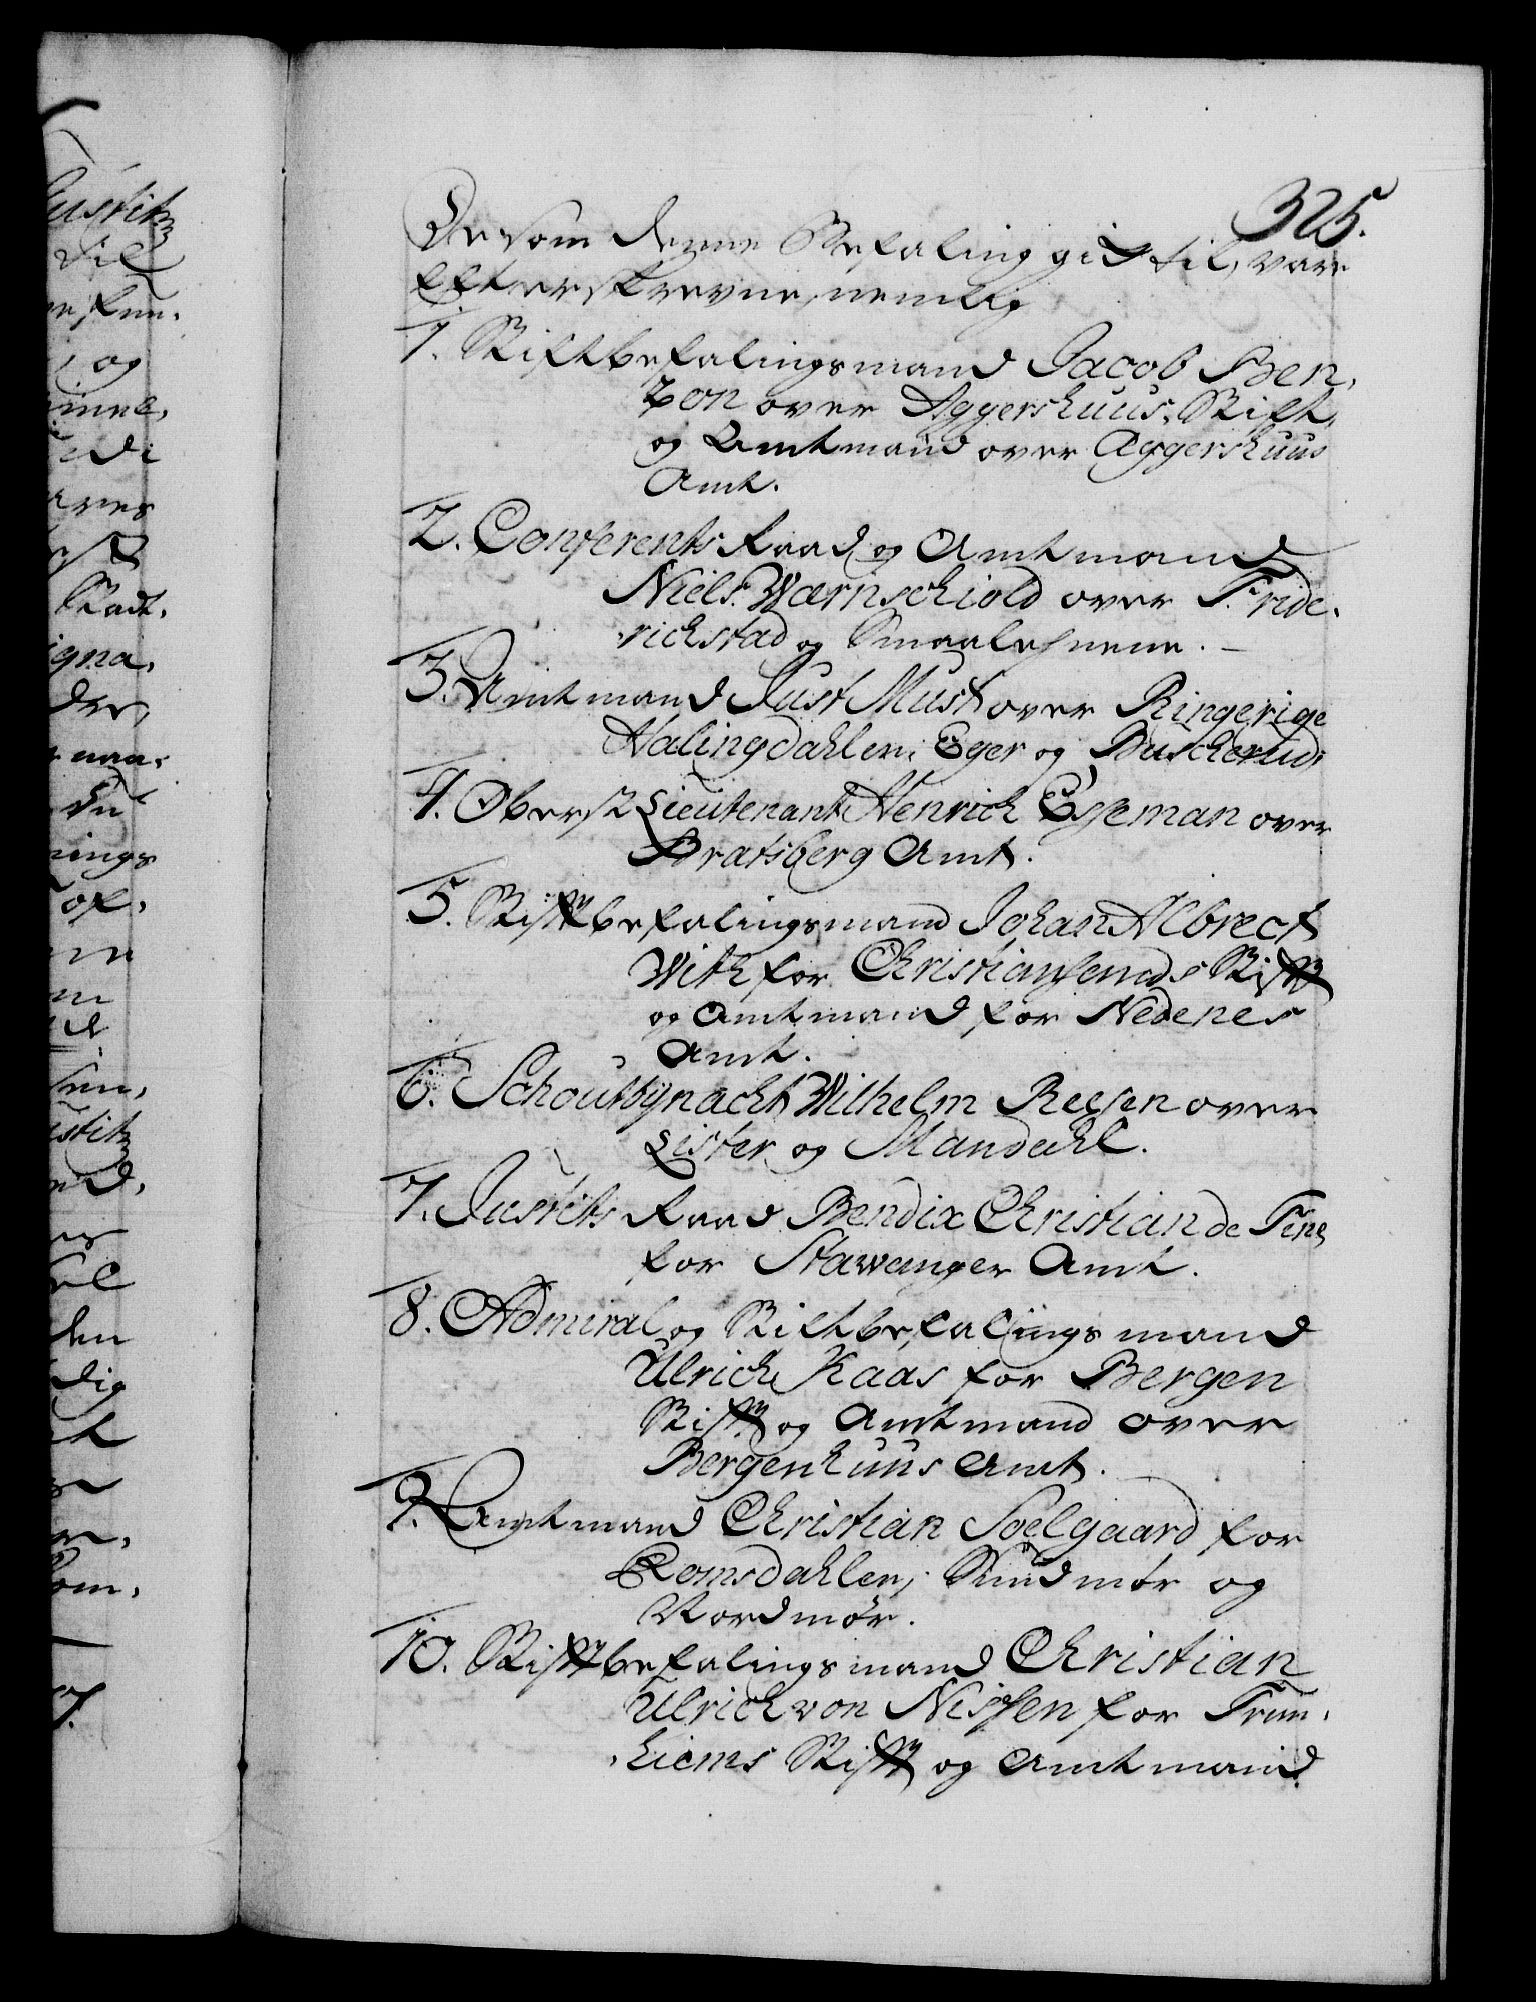 325.
De som denne Befaling gik til, vare
Efterskrevne, nemlig
1. Stiftbefalingsmand Jacob Ben-
tzon over Aggershuus, Stift,
og Amtmand over Aggershuus
Amt.
2. Conferents Raad og Amtmand
Niels Wærnschiold over Fride-
richstad og Smaalehnene.
3. Amtmand Just Must over Ringerige
Halingdahlen, Eger og Buscherud,
4. Oberst Lieutenant Henrich Egeman over
Bratsberg Amt.
5. Stiftbefalingsmand Johan Albrect
With for Christiansends Stift
og Amtmand for Nedenes
Amt.
6. Schoutbynacht Wilhelm Reesen over
Lister og Mandahl.
7. Justits Raad Bendix Christian de Fine
for Stawanger Amt.
8. Admiral og Stiftbefalings mand
Ulrich Kaas for Bergen
Stift og Amtmand over
Bergenhuus Amt.
9. Amtmand Christian Soelgaard for
Romsdahlen, Sundmør og
Nordmør.
10. Stiftbefalingsmand Christian
Ulrich von Nissen for Trun-
hiems Stift og Amtmand
Justitz
til
og